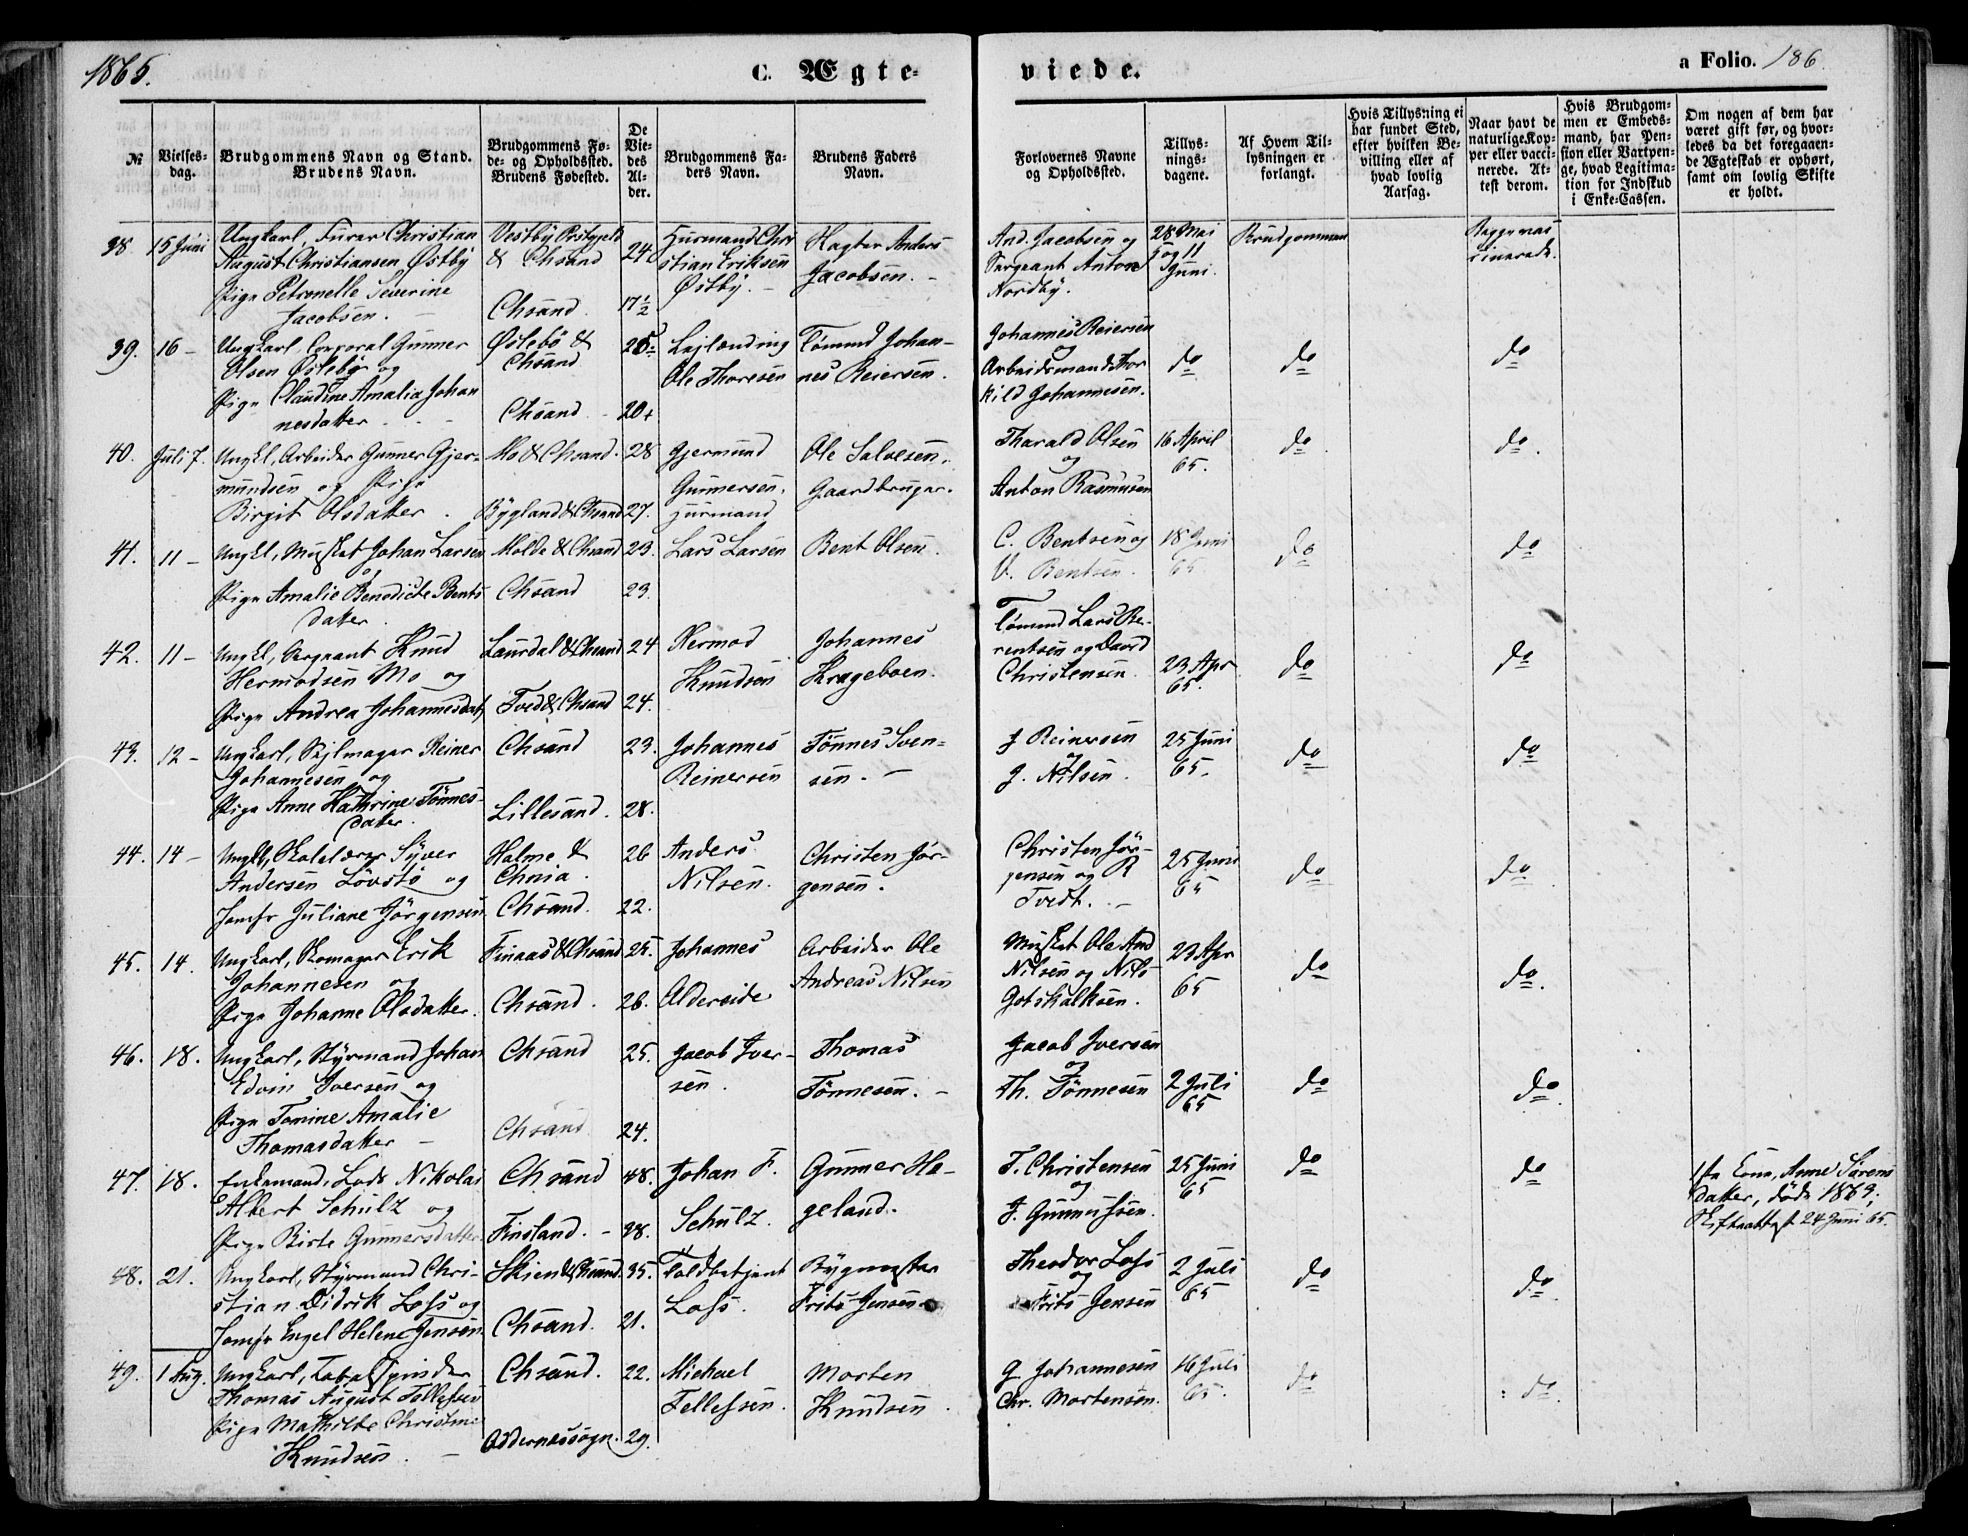 1865.
C. Ægte-
viede.
a Folio. 186
№
Vielses-
dag.
Brudgommens Navn og Stand.
Brudens Navn.
Brudgommens Fø-
de- og Opholdssted.
Brudens Fødested.
De
Vie-
des
Al-
der.
Brudgommens Fa-
ders Navn.
Brudens Faders
Navn.
Forlovernes Navne
og Opholdssted.
Tillys-
nings-
dagene.
Af Hvem Til-
lysningen er
forlangt.
Hvis Tillysning ei
har fundet Sted,
efter hvilken Be-
villing eller af
hvad lovlig
Aarsag.
Naar havt de
naturlige Kop-
per eller vacci-
nerede. At-
test derom.
Hvis Brudgom-
men er Embeds-
mand, har Pen-
sion eller Vartpen-
ge, hvad Legitima-
tion for Indskud
i Enke-Cassen.
Om nogen af dem har
været gift før, og hvor-
ledes da det foregaaen-
de Ægteskab er ophørt,
samt om lovlig Skifte
er holdt.
38. 15 Juni
Ungkarl, Furer Christian
August Christiansen Østby
Pige Petronelle Severine
Jacobsen.
Vestby Prstgjeld
& Chsand
Chsand.
24
17½
Huusmand Chri
stian Eriksen
Østby.
Anders
Jacobsen.
And. Jacobsen og
Sergeant Anton
Nordby.
28 Mai
5 og 11
Juni.
Brudgommen
Begge vac
cinerede.
39. 16 -
Ungkarl, Corporal Gunner
Olsen Øslebø og
Pige Claudine Amalia Johan
nesdatter
Øslebø &
Chsand
Chsand
20
Leilænding
Ole Thoresen
Tømmd Johan-
nes Reiersen.
Johannes Reiersen
og
Arbeidsmand Thor
kild Johannesen.
do
do
do
40. Juli 7.
Ungkl, Arbeider Gunner Gjer-
mundsen og Pige
Birgit Olsdatter.
Mo & Chsand.
Bygland & Chsand
28
27.
Gjermund
Gunnersen,
Huusmand
Ole Salvesen,
Gaardbruger.
Tharald Olsen
og
Anton Rasmusen
16 April
65.
do
do.
41. 11 -
Ungkl, Musket Johan Larsen
og
Pige Amalie Benedicte Bents
datter.
Molde & Chsand
Chsand
23.
23.
Lars Larsen
Bent Olsen.
C. Bentsen og
V. Bentsen.
18 Juni
65.
do
do
42. 11 -
Ungkl, Sergeant Knud
Hermodsen Mo og
Pige Andrea Johannesdat
Laurdal & Chsand
Tved & Chsand
24
24.
Hermod
Knudsen
Johannes
Krageboen.
Tømmd Lars Be-
rentsen og David
Christensen.
23 Apr
65.
do
do
43. 12 -
Ungkarl, Seilmager Reiner
Johannesen og
Pige Anne Kathrine Tønnes-
datter.
Chsand
Lillesand.
23.
28.
Johannes
Reinersen
Tønnes Sven-
sen.
J Reinersen
og
J. Nilsen.
25 Juni
65.
do
do
44. 14 -
Ungkl, Skolelærer Syver
Andersen Løvstø og
Jomfr Juliane Jørgensen
Halme &
Chnia.
Chsand.
26
22.
Anders
Nilsen.
Christen Jør-
gensen.
Christen Jør-
gensen og R
Tvedt.
25 Juni
65
do
do
45. 14.
Ungkarl, Skomager Erik
Johannesen og
Pige Johanne Olsdatter.
Finaas & Chsand
Chsand.
25.
26.
Johannes
Alderside
Arbeider Ole
Andreas Nilsen
Musket Ole And
Nilsen og Nils
Gotskalksen.
23 Apr
65
do
do.
46. 18.
Ungkarl, Styrmand Johan
Edvin Iversen og
Pige Tomine Amalie
Thomasdatter
Chsand
Chsand
25.
24.
Jacob Iver-
sen.
Thomas
Tønnesen.
Jacob Iversen
og
Th. Tønnesen
2 Juli
65
do
do.
47. 18.
Enkemand, Lods Nikolai
Albert Schulz og
Pige Birte Gunnersdatter
Chsand
Finsland.
48.
38.
Johan F.
Schulz.
Gunner He-
geland.
F. Christensen
og
J. Gunnufsen.
25 Juni
65
do
do
1ste Kone, Anne Sørens
datter, døde 1863;
Skifteattest 24 Juni 65.
48. 21.
Ungkarl, Styrmand Chri-
stian Didrik Loss og
Jomfr Engel Helene Jensen.
Skien & Chsand.
Chsand.
35.
21.
Toldbetjent
Loss.
Bygmester
Frits Jensen
Theodor Loss
og
Frits Jensen
2 Juli
65
do
do.
49. 1 Aug.
Ungkarl, Tobakspinder
Thomas August Tellefsen
Pige Mathilde Christine
Knudsen.
Chsand.
Oddernessogn.
22.
29.
Michael
Tellefsen.
Morten
Knudsen.
G Johannesen
Chr. Mortensen.
16 Juli
65.
do
do